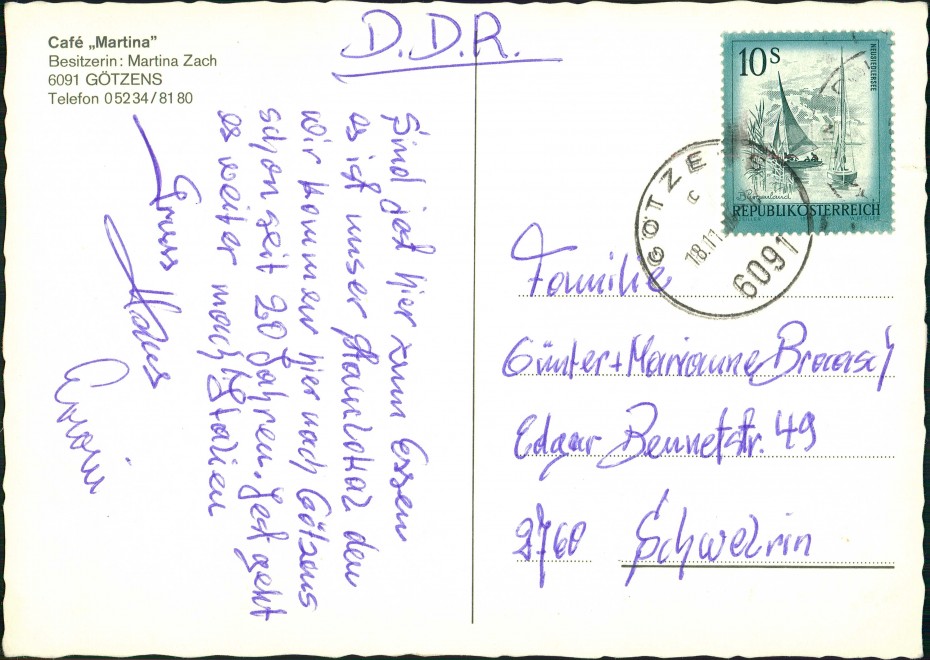 Café „Martina”
Besitzerin: Martina Zach
6091 GÖTZENS
Telefon 05234/8180
D.D.R.
Sind jest hier zum Essen
es ist unser Stamlokal den
wir kommen hier nach Götzens
schon seit 20 Jahren. Jest geht
es weiter nach Italien
Gruss
Hans
10 S
NEUSIEDLERSEE
Burgenland
REPUBLIK ÖSTERREICH
GÖTZE
c
18.11
6091
Familie
Günter + Marianne
Edgar Bennetstr. 49
2760 Schwerin